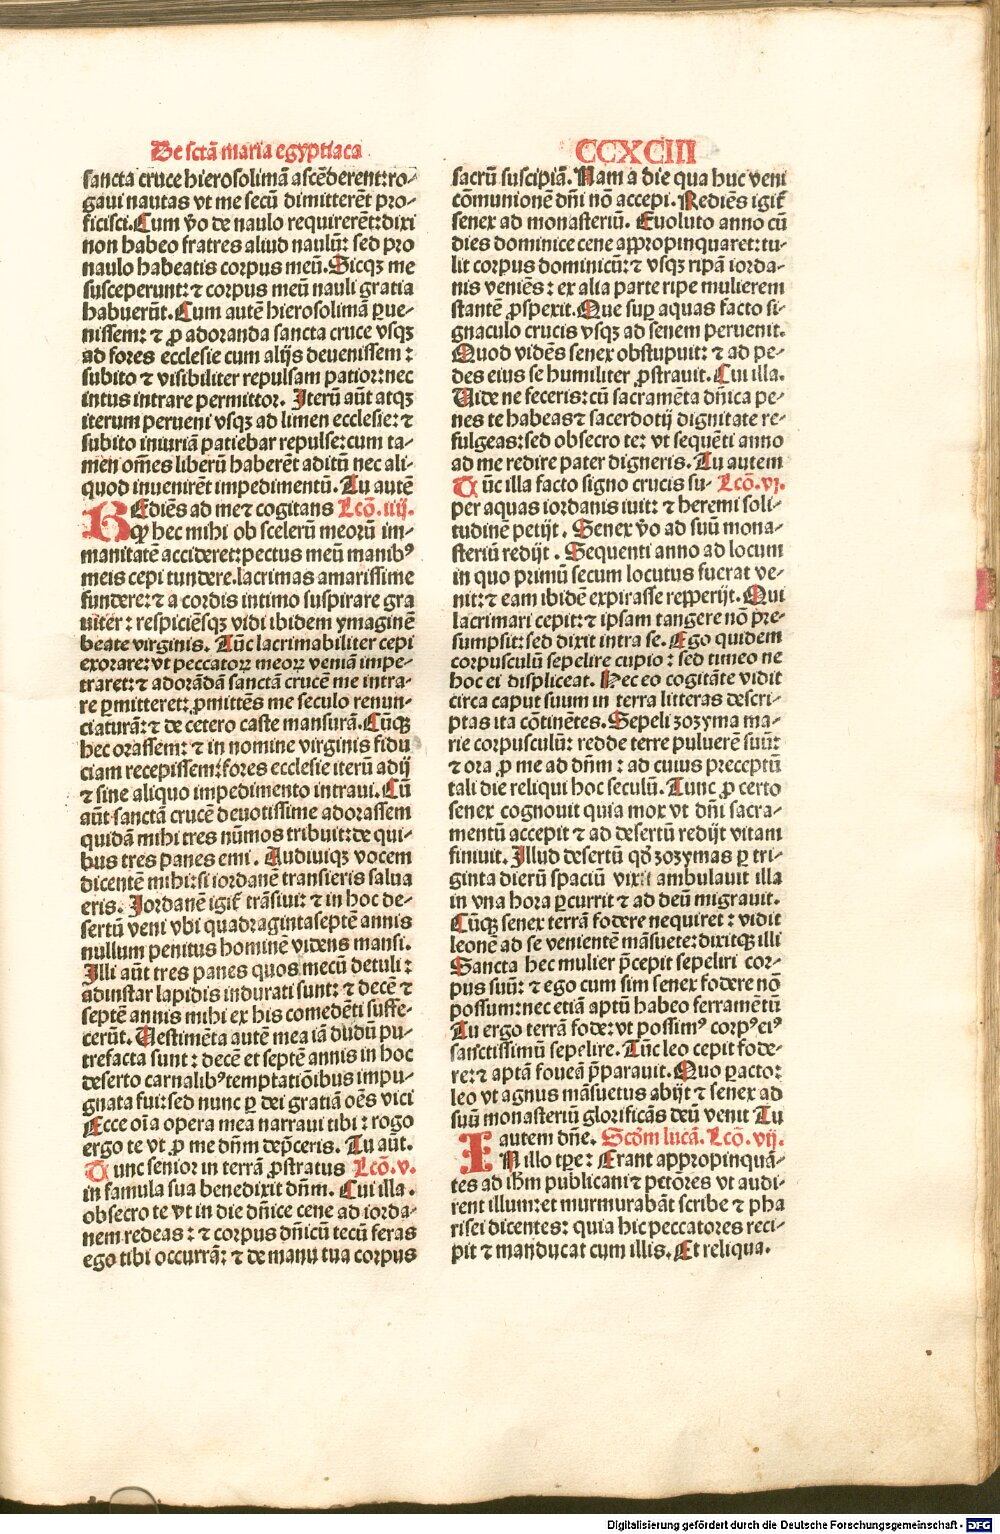 De sctā maria egyptiaca
CCXCIII
sancta cruce hierosolimā ascēderent: ro⸗
gaui nautas vt me secū dimitterēt pro⸗
ficisci. Cum v̄o de naulo requirerēt: dixi
non habeo fratres aliud naulū: sed pro
naulo habeatis corpus meū. Sicqꝫ me
susceperunt: ⁊ corpus meū nauli gratia
habuerūt. Cum autē hierosolimā ꝑue⸗
nissem: ⁊ ꝓ adoranda sancta cruce vsqꝫ
ad fores ecclesie cum alijs deuenissem:
subito ⁊ visibiliter repulsam patior: nec
intus intrare permittor. Iterū aūt atqꝫ
iterum perueni vsqꝫ ad limen ecclesie: ⁊
subito iniuriā patiebar repulse: cum ta⸗
men om̄es liberū haberēt aditū nec ali⸗
quod inuenirēt impedimentū. Tu autē
REdiēs ad me ⁊ cogitans Lcō. iiij.
ꝙ hec mihi ob scelerū meorū im⸗
manitatē accideret: pectus meū manibꝰ
meis cepi tundere. lacrimas amarissime
fundere: ⁊ a cordis intimo suspirare gra
uiter: respiciēsqꝫ vidi ibidem ymaginē
beate virginis. Tūc lacrimabiliter cepi
exorare: vt peccatoꝝ meoꝝ veniā impe⸗
traret: ⁊ adorādā sanctā crucē me intra⸗
re ꝑmitteret: ꝓmittēs me seculo renun⸗
ciaturā: ⁊ de cetero caste mansurā. Cūqꝫ
hec orassem: ⁊ in nomine virginis fidu
ciam recepissem: fores ecclesie iterū adij
⁊ sine aliquo impedimento intraui. Cū
aūt sanctā crucē deuotissime adorassem
quidā mihi tres nūmos tribuit: de qui⸗
bus tres panes emi. Audiuiqꝫ vocem
dicentē mihi: si iordanē transieris salua
eris. Iordanē igit̄ trāsiui: ⁊ in hoc de⸗
sertū veni vbi quadragintaseptē annis
nullum penitus hominē videns mansi.
Illi aūt tres panes quos mecū detuli:
adinstar lapidis indurati sunt: ⁊ decē ⁊
septē annis mihi ex his comedēti suffe⸗
cerūt. Uestimēta autē mea iā dudū pu⸗
trefacta sunt: decē et septē annis in hoc
deserto carnalibꝰ temptatiōibus impu⸗
gnata fui: sed nunc ꝑ dei gratiā oēs vici
Ecce oīa opera mea narraui tibi: rogo
ergo te vt ꝓ me dn̄m dep̄ceris. Tu aūt.
Tunc senior in terrā ꝓstratus Lcō. v.
in famula sua benedixit dn̄m. Cui illa.
obsecro te vt in die dn̄ice cene ad iorda⸗
nem redeas: ⁊ corpus dn̄icū tecū feras
ego tibi occurrā: ⁊ de manu tua corpus
sacrū suscipiā. Nam a die qua huc veni
cōmunionē dn̄i nō accepi. Rediēs igit̄
senex ad monasteriū. Euoluto anno cū
dies dominice cene appropinquaret: tu⸗
lit corpus dominicū: ⁊ vsqꝫ ripā iorda⸗
nis veniēs: ex alia parte ripe mulierem
stantē ꝓspexit. Que suꝑ aquas facto si⸗
gnaculo crucis vsqꝫ ad senem peruenit.
Quod vidēs senex obstupuit: ⁊ ad pe⸗
des eius se humiliter ꝓstrauit. Cui illa.
Uide ne feceris: cū sacramēta dn̄ica pe⸗
nes te habeas ⁊ sacerdotij dignitate re⸗
fulgeas: sed obsecro te: vt sequēti anno
ad me redire pater digneris. Tu autem
Tūc illa facto signo crucis su⸗ Lcō. vj.
per aquas iordanis iuit: ⁊ heremi soli⸗
tudinē petijt. Senex v̄o ad suū mona⸗
steriū redijt. Sequenti anno ad locum
in quo primū secum locutus fuerat ve⸗
nit: ⁊ eam ibidē expirasse repperijt. Qui
lacrimari cepit: ⁊ ipsam tangere nō pre⸗
sumpsit: sed dixit intra se. Ego quidem
corpusculū sepelire cupio: sed timeo ne
hoc ei displiceat. Hec eo cogitāte vidit
circa caput suum in terra litteras descri⸗
ptas ita cōtinētes. Sepeli zozyma ma⸗
rie corpusculū: redde terre puluerē suū:
⁊ ora ꝓ me ad dn̄m: ad cuius preceptū
tali die reliqui hoc seculū. Tunc ꝓ certo
senex cognouit quia mox vt dn̄i sacra⸗
mentū accepit ⁊ ad desertū redijt vitam
finiuit. Illud desertū qd̄ zozymas ꝑ tri⸗
ginta dierū spaciū vixit ambulauit illa
in vna hora ꝑcurrit ⁊ ad deū migrauit.
Cūqꝫ senex terrā fodere nequiret: vidit
leonē ad se venientē māsuete: dixitqꝫ illi
Sancta hec mulier p̄cepit sepeliri cor⸗
pus suū: ⁊ ego cum sim senex fodere nō
possum: nec etiā aptū habeo ferramētū
Tu ergo terrā fode: vt possimꝰ corpꝰ eiꝰ
sanctissimū sepelire. Tūc leo cepit fode⸗
re: ⁊ aptā foueā p̄parauit. Quo ꝑacto:
leo vt agnus māsuetus abijt ⁊ senex ad
suū monasteriū glorificās deū venit Tu
autem dn̄e. Scd̄m lucā. Lcō. vij.
IN illo tꝑe: Erant appropinquā⸗
tes ad ihm̄ publicani ⁊ pctōres vt audi⸗
rent illum: et murmurabāt scribe ⁊ pha
risei dicentes: quia hic peccatores reci⸗
pit ⁊ manducat cum illis. Et reliqua.
Digitalisierung gefördert durch die Deutsche Forschungsgemeinschaft - DFG